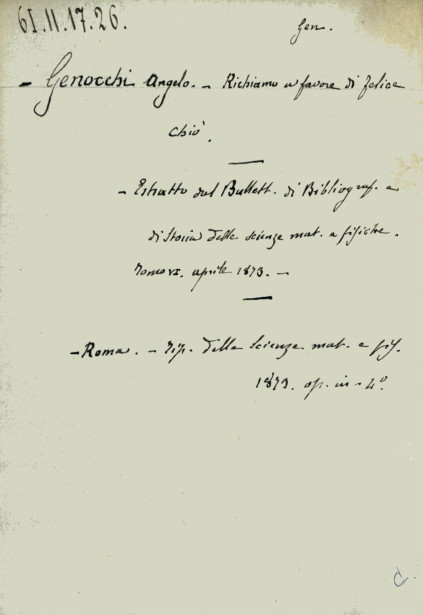 61.11.17.26.
Gen.
- Genocchi Angelo. - Richiamo a favore di Felice
Chiò.
- Estratto dal Bullett. di Bibliograf. e
di Storia delle scienze mat. e fisiche.
Tomo VI. aprile 1873. -
- Roma. - Tip. delle Scienze mat. e fis.
1873. op. in - 4º.
C.